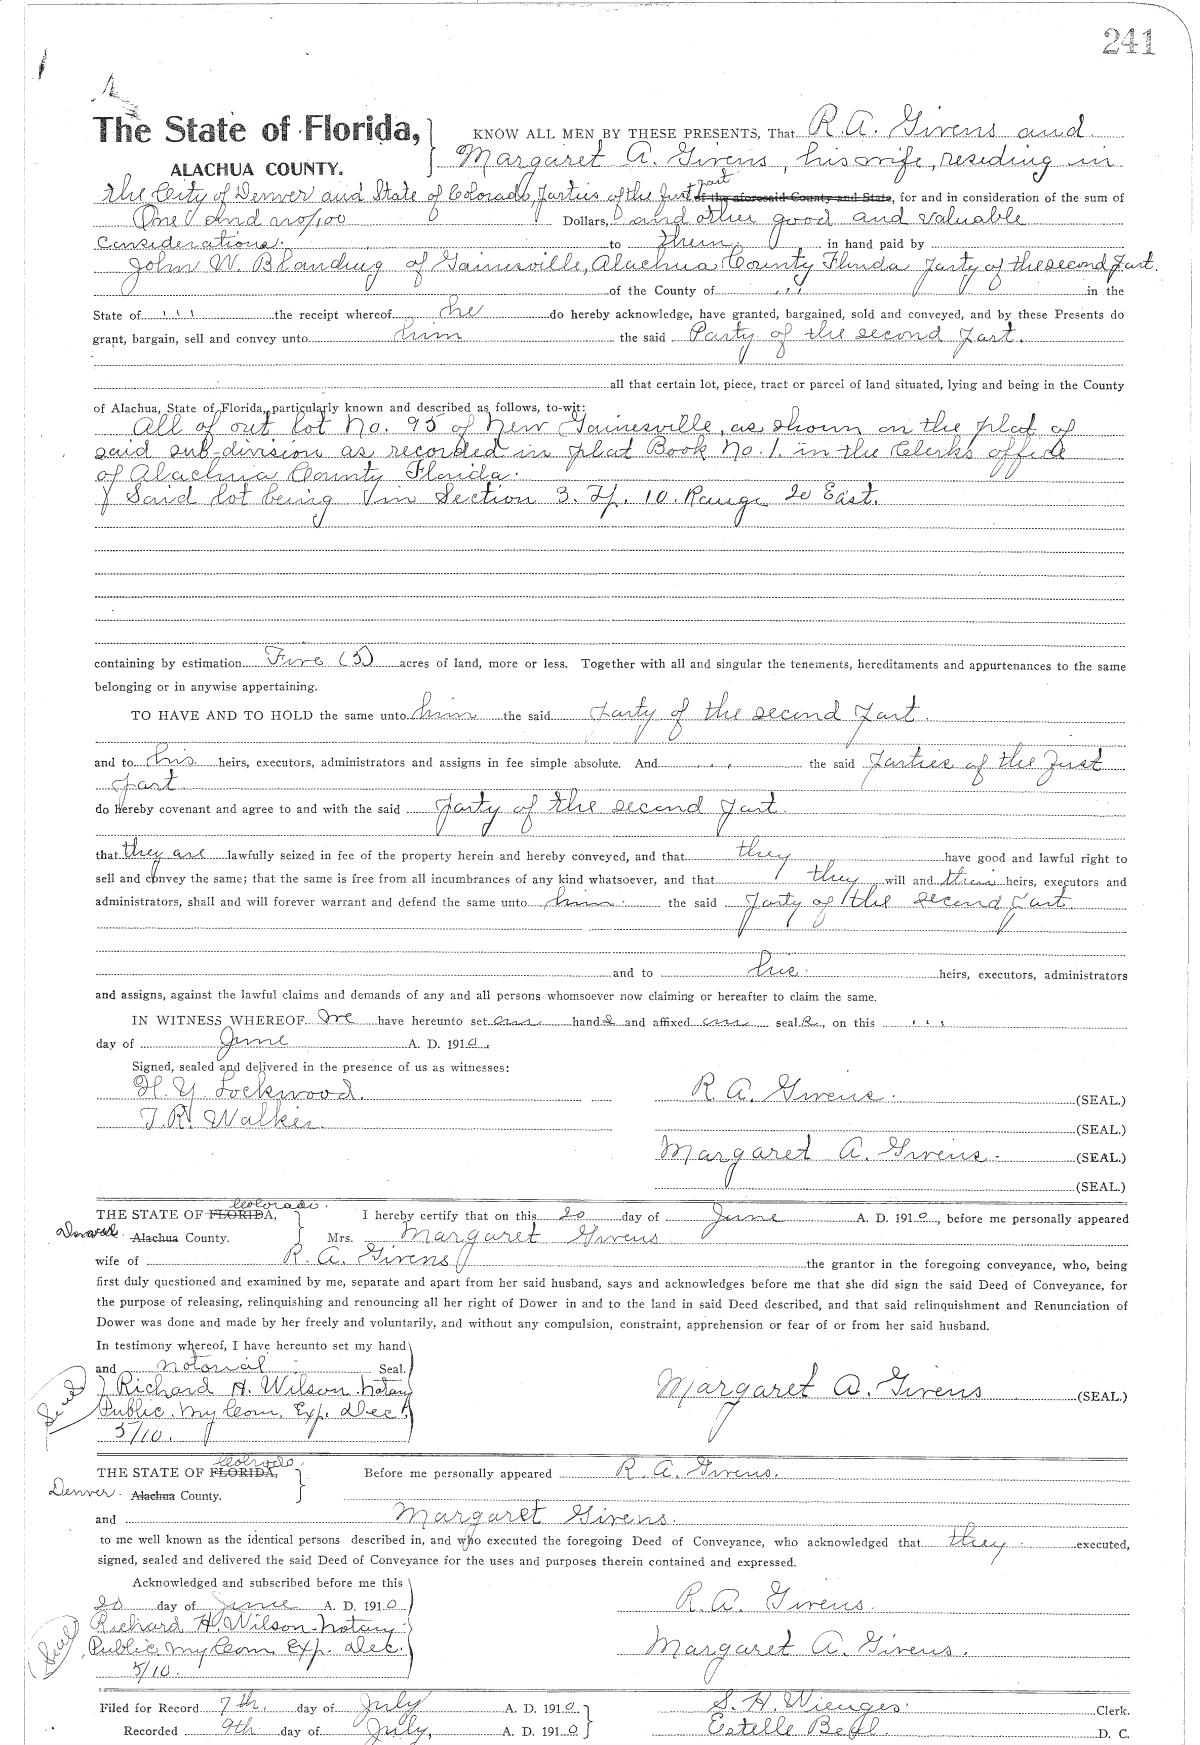 241
The State of Florida,
ALACHUA COUNTY.
KNOW ALL MEN BY THESE PRESENTS, That R. A. Givens and
Margaret A. Givens, his wife, residing in
the City of Denver and State of Colorado, Parties of the first part of the aforesaid County and State, for and in consideration of the sum of
One and no/100 Dollars, and other good and valuable
considerations. to them in hand paid by
John W. Blanding of Gainesville, Alachua County Florida party of the second part.
of the County of " " in the
State of " " the receipt whereof he do hereby acknowledge, have granted, bargained, sold and conveyed, and by these Presents do
grant, bargain, sell and convey unto him the said Party of the second part.
all that certain lot, piece, tract or parcel of land situated, lying and being in the County
of Alachua, State of Florida, particularly known and described as follows, to-wit:
All of out lot No. 95 of New Gainesville, as shown on the plat of
said sub-division as recorded in plat Book No. 1. in the Clerks office
of Alachua County Florida.
Said lot being in Section 3. Tp. 10. Range 20 East.
containing by estimation Five (5) acres of land, more or less. Together with all and singular the tenements, hereditaments and appurtenances to the same
belonging or in anywise appertaining.
TO HAVE AND TO HOLD the same unto him the said party of the second part.
and to his heirs, executors, administrators and assigns in fee simple absolute. And the said parties of the first
part
do hereby covenant and agree to and with the said party of the second part.
that they are lawfully seized in fee of the property herein and hereby conveyed, and that they have good and lawful right to
sell and convey the same; that the same is free from all incumbrances of any kind whatsoever, and that they will and their heirs, executors and
administrators, shall and will forever warrant and defend the same unto him the said party of the second part.
and to his heirs, executors, administrators
and assigns, against the lawful claims and demands of any and all persons whomsoever now claiming or hereafter to claim the same.
IN WITNESS WHEREOF We have hereunto set our hands and affixed our seals, on this " "
day of June A. D. 1910.
Signed, sealed and delivered in the presence of us as witnesses:
H. Y. Lockwood. R. A. Givens. (SEAL.)
T. R. Walker. (SEAL.)
Margaret A. Givens. (SEAL.)
(SEAL.)
Colorado.
THE STATE OF FLORIDA, I hereby certify that on this 20 day of June A. D. 1910, before me personally appeared
Alachua County. Mrs. Margaret Givens
wife of R. A. Givens the grantor in the foregoing conveyance, who, being
first duly questioned and examined by me, separate and apart from her said husband, says and acknowledges before me that she did sign the said Deed of Conveyance, for
the purpose of releasing, relinquishing and renouncing all her right of Dower in and to the land in said Deed described, and that said relinquishment and Renunciation of
Dower was done and made by her freely and voluntarily, and without any compulsion, constraint, apprehension or fear of or from her said husband.
In testimony whereof, I have hereunto set my hand
and notorial Seal.
Seal Richard H. Wilson Notary Margaret A. Givens (SEAL.)
Public. My Com. Exp. Dec.
5/10.
Colorado.
THE STATE OF FLORIDA, Before me personally appeared R. A. Givens.
Denver. Alachua County.
and Margaret Givens.
to me well known as the identical persons described in, and who executed the foregoing Deed of Conveyance, who acknowledged that they executed,
signed, sealed and delivered the said Deed of Conveyance for the uses and purposes therein contained and expressed.
Acknowledged and subscribed before me this
20 day of June A. D. 1910 R. A. Givens.
Richard H. Wilson Notary
Seal Public. My Com Exp. Dec. Margaret A. Givens.
5/10.
Filed for Record 7th. day of July A. D. 1910 S. H. Wienges. Clerk.
Recorded 9th day of July, A. D. 1910 Estelle Bell. D. C.